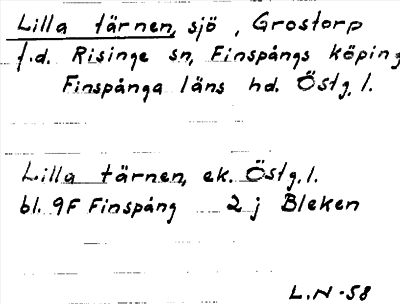 Lilla tärnen, sjö, Grostorp
f.d. Risinge sn, Finspångs köping
Finspånga läns hd. Östg. l.
Lilla tärnen, ek. Östg. l.
bl. 9F Finspång 2 j Bleken
L.N-58